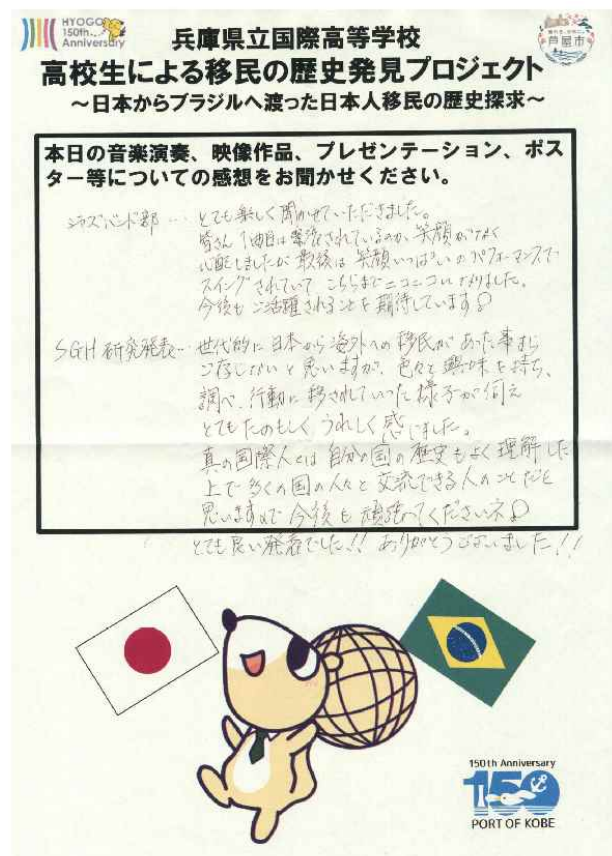 HYOGO
150th
Anniversary
兵庫県立国際高等学校
芦屋市
高校生による移民の歴史発見プロジェクト
~日本からブラジルへ渡った日本人移民の歴史探求~
本日の音楽演奏、映像作品、プレゼンテーション、ポス
ター等についての感想をお聞かせください。
ジャズバンド部… とても楽しく聞かせていただきました。
皆さん1曲目は緊張されているのか、笑顔がなく
心配しましたが最後は笑顔いっぱいのパフォーマンスで
スイングされていて こちらまでニコニコになりました。
今後もご活躍されることを期待しています
SGH 研究発表… 世代的に日本から海外への移民があった事すら
ご存じないと思いますが、色々と興味を持ち、
調べ、行動に移されていった様子が伺え
とてもたのもしく うれしく感じました。
真の国際人とは自分の国の歴史もよく理解した
上で多くの国の人々と交流できる人のことだと
思いますので 今後も頑張ってくださいネ
とても良い発表でした!! ありがとうございました!!
150th Anniversary
150
PORT OF KOBE